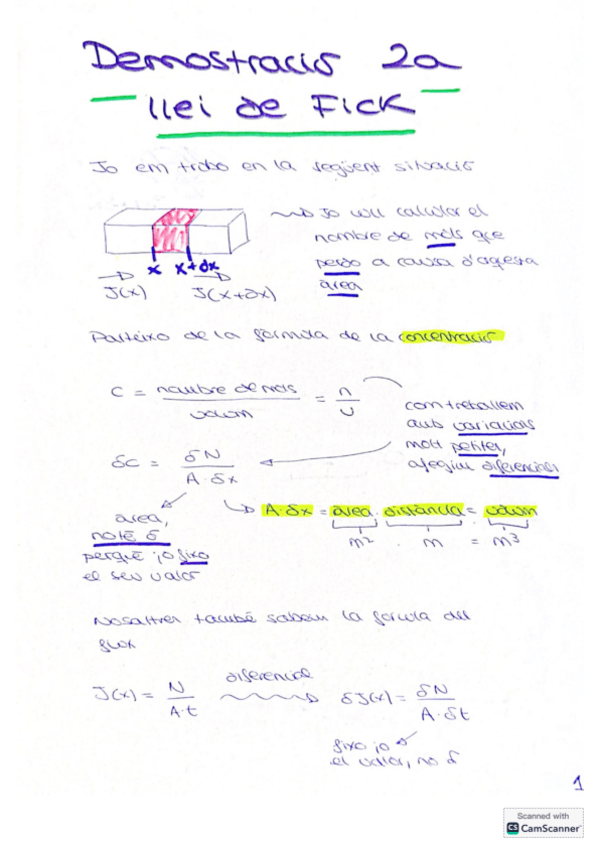 Demostració 2a
llei de Fick
Jo em trobo en la següent situació
Jo vull calcular el
nombre de mols que
perdo a causa d'aquesta
àrea
x x+dx
J(x) J(x+dx)
Parteixo de la fórmula de la concentració
C = nombre de mols / volum = n / v
com treballem
amb variacions
molt petites,
afegim diferencials
δC = δN / A·δx
A·δx = àrea · distància = volum
m² · m = m³
àrea,
no té δ
perquè jo fixo
el seu valor
Nosaltres també sabem la fórmula del
flux
J(x) = N / A·t
diferencial
δJ(x) = δN / A·δt
fixo jo
el valor, no δ
1
Scanned with
CS CamScanner